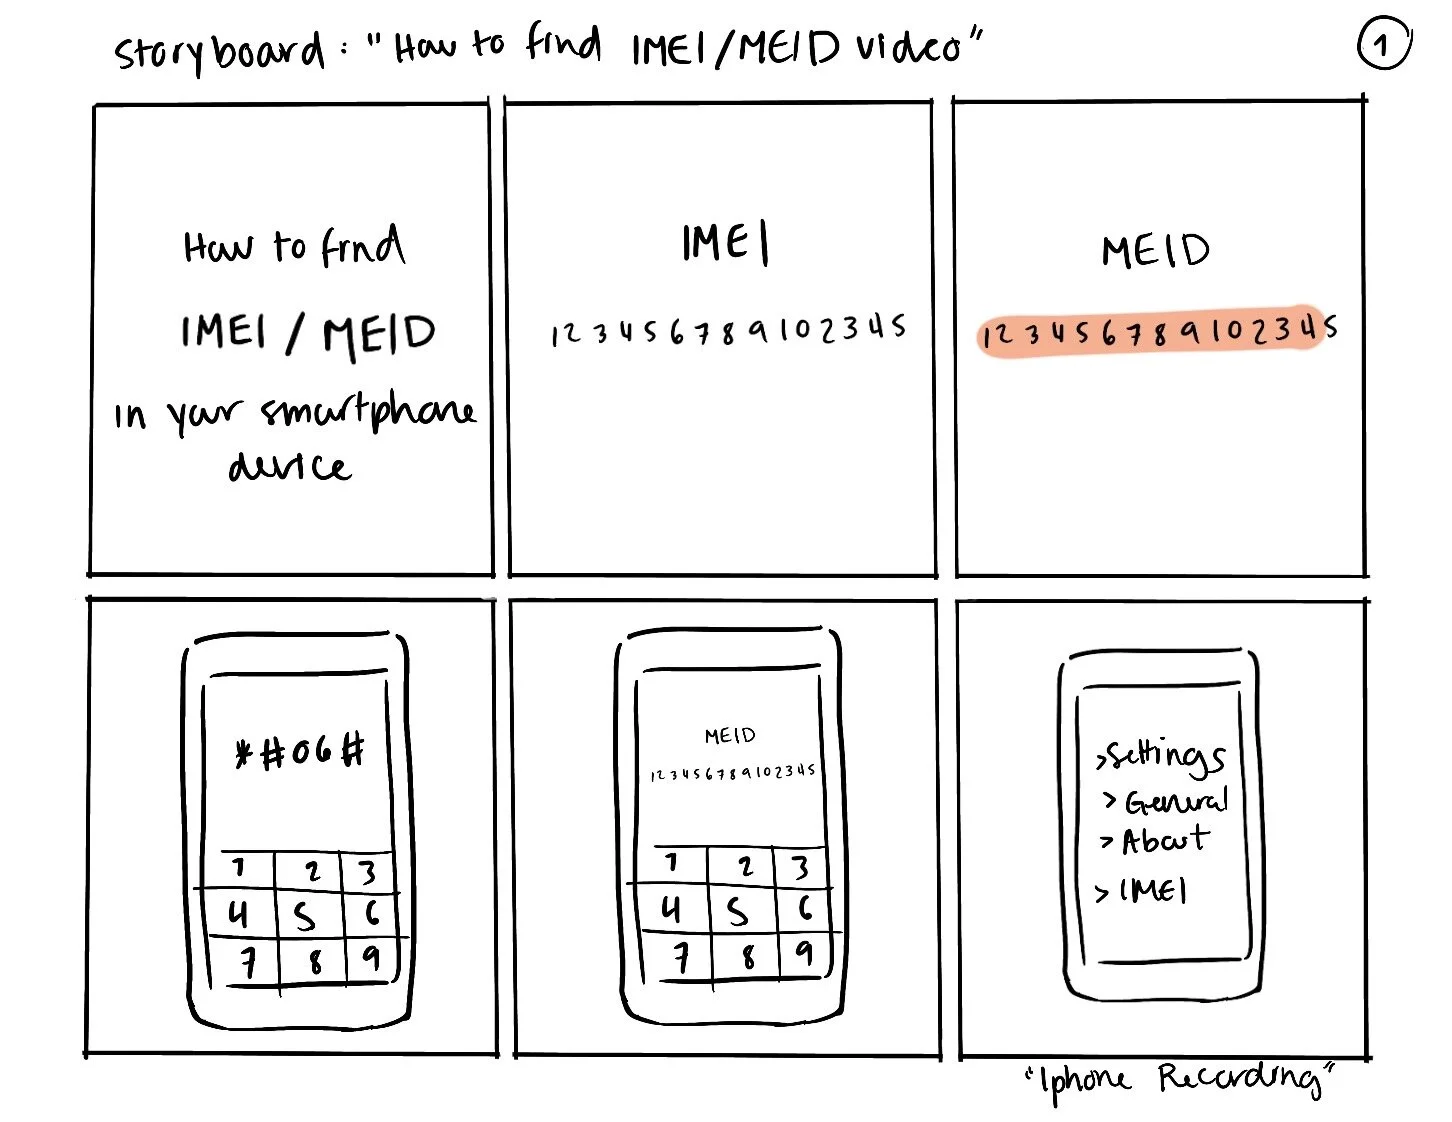 storyboard: "How to find IMEI/MEID video"
1
How to find
IMEI / MEID
in your smartphone
device
IMEI
123456789102345
MEID
123456789102345
*#06#
1 2 3
4 5 6
7 8 9
MEID
123456789102345
1 2 3
4 5 6
7 8 9
>Settings
> General
> About
> IMEI
"Iphone Recording"